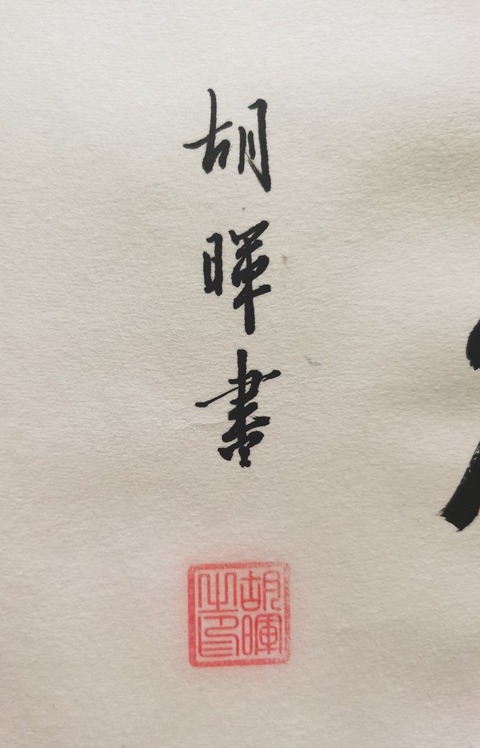 胡暉書
胡暉之印